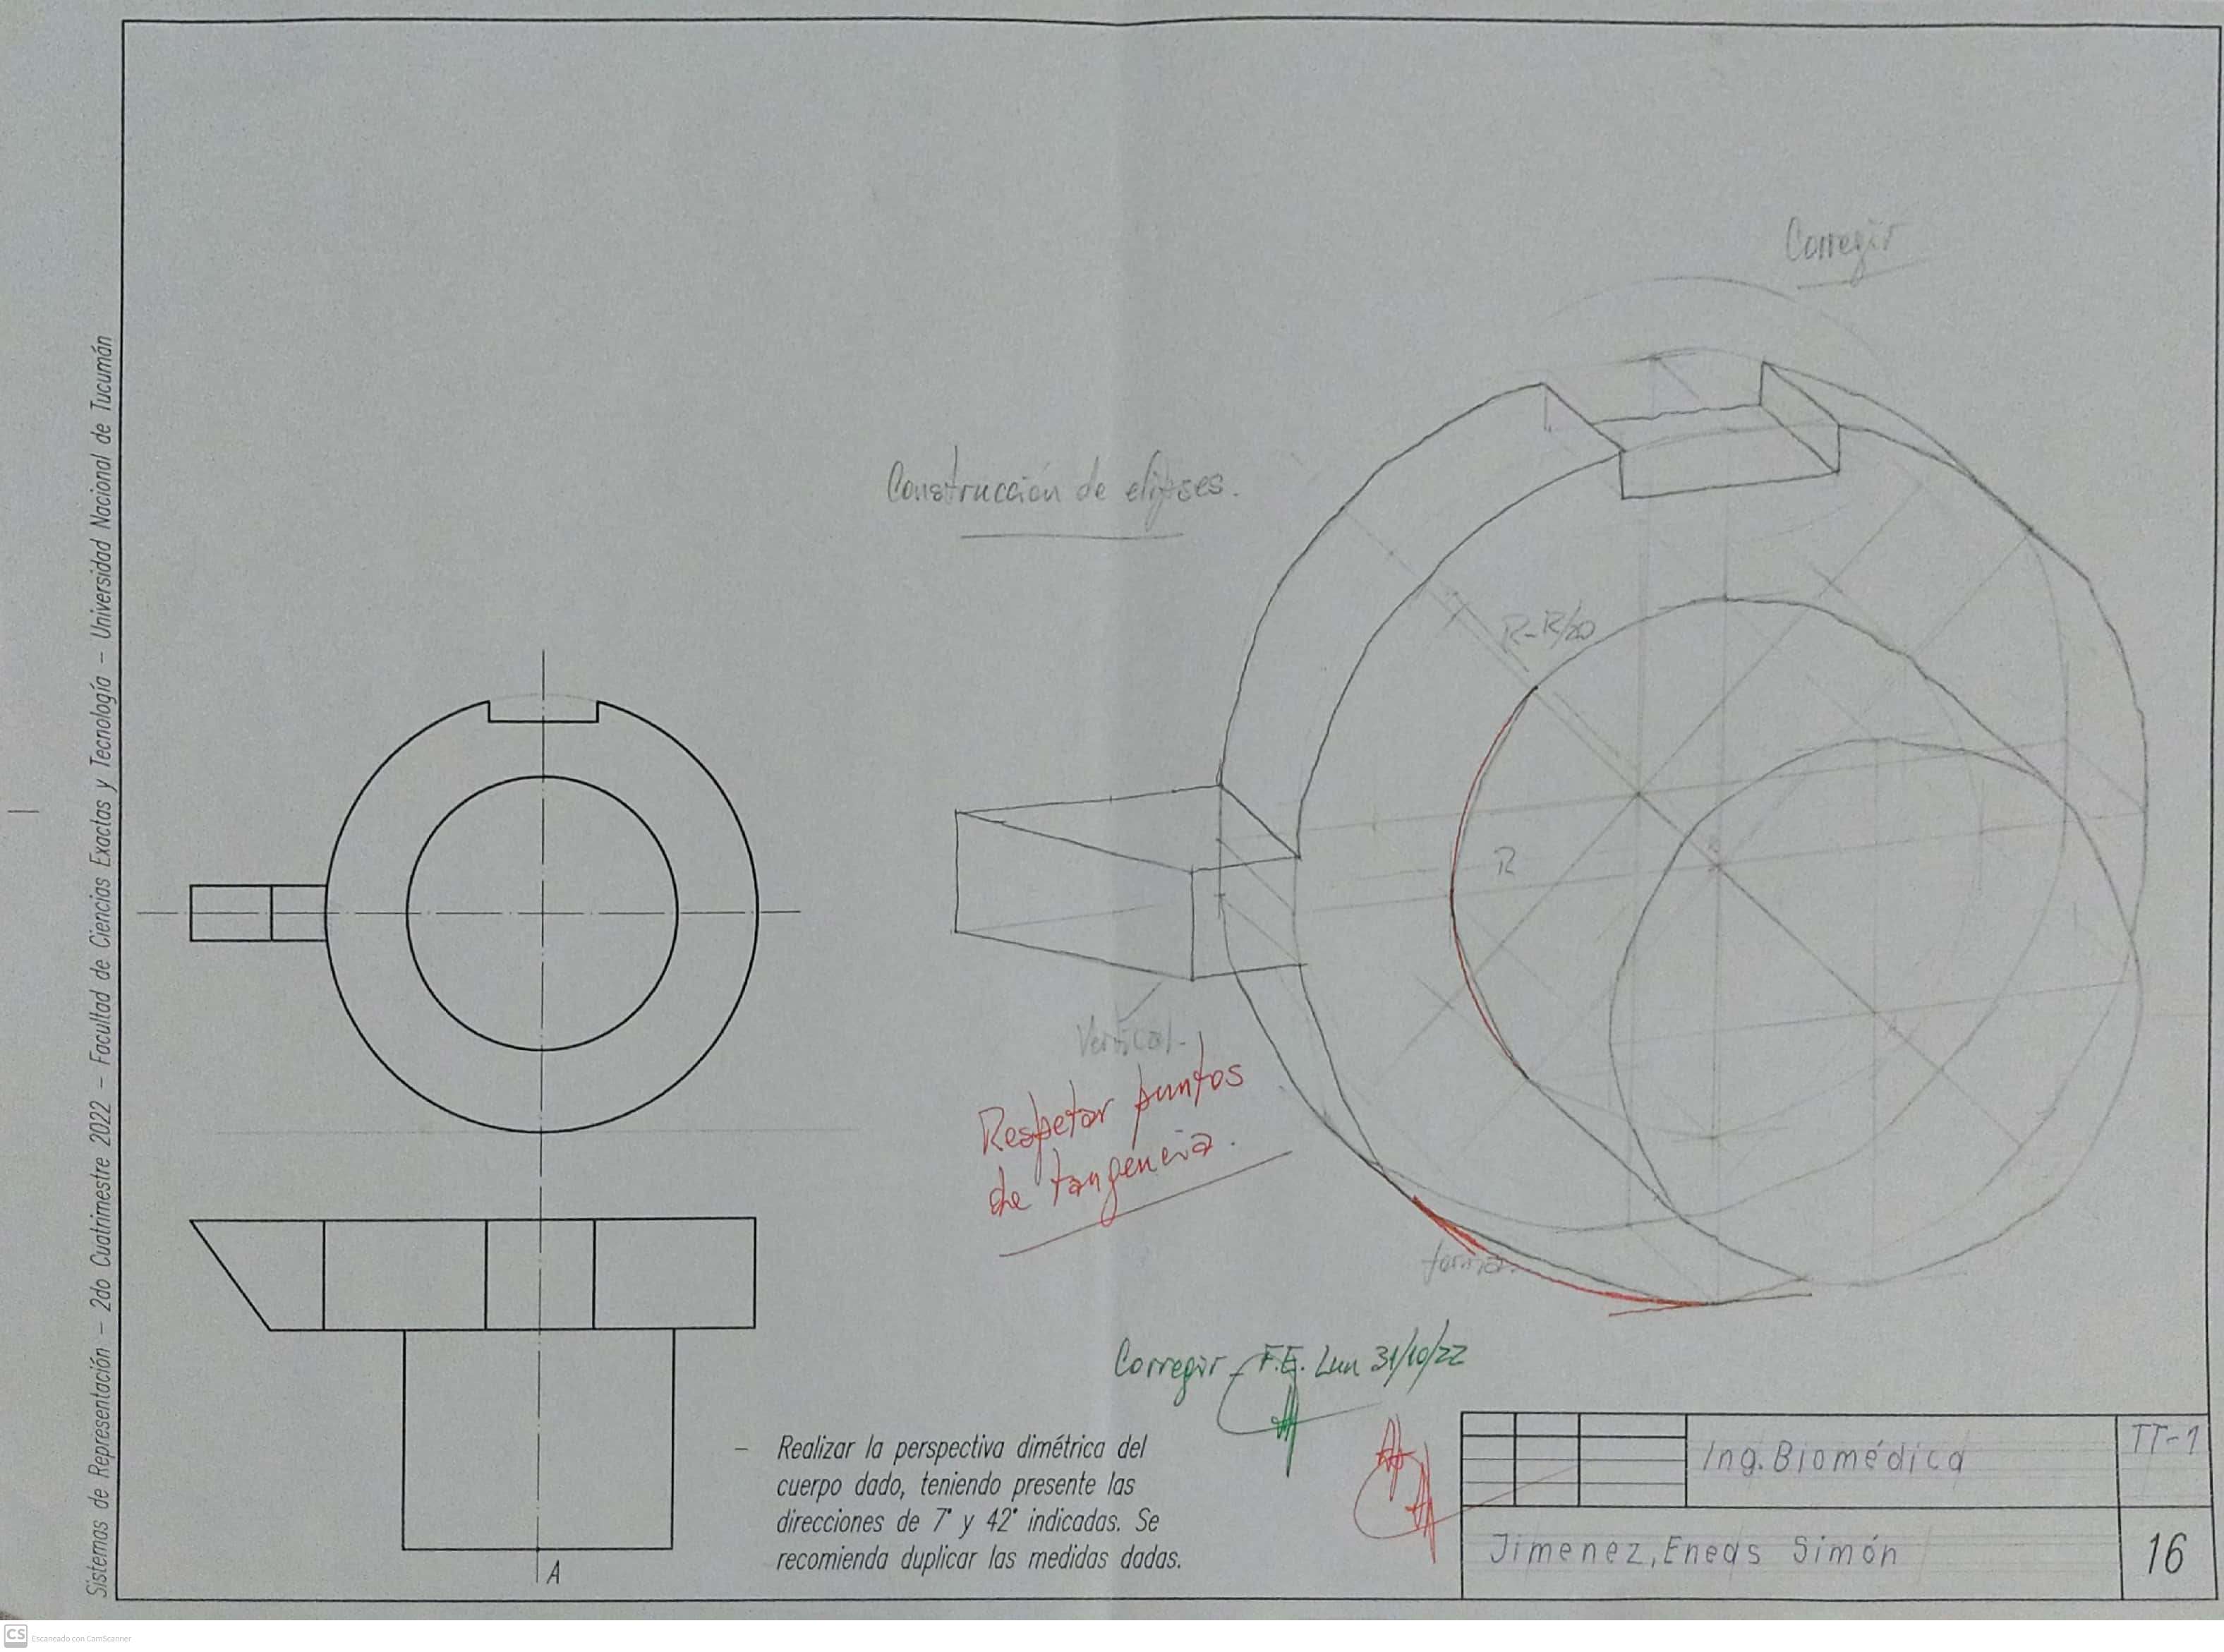 Sistemas de Representación – 2do Cuatrimestre 2022 – Facultad de Ciencias Exactas y Tecnología – Universidad Nacional de Tucumán
Corregir
Construcción de elipses.
R-R/20
R
Vertical-
Respetar puntos
de tangencia.
forma.
Corregir - F.E. Lun 31/10/22
– Realizar la perspectiva dimétrica del
cuerpo dado, teniendo presente las
direcciones de 7° y 42° indicadas. Se
recomienda duplicar las medidas dadas.
A
Ing. Biomédica
TT-1
Jimenez, Eneas Simón
16
CS Escaneado con CamScanner